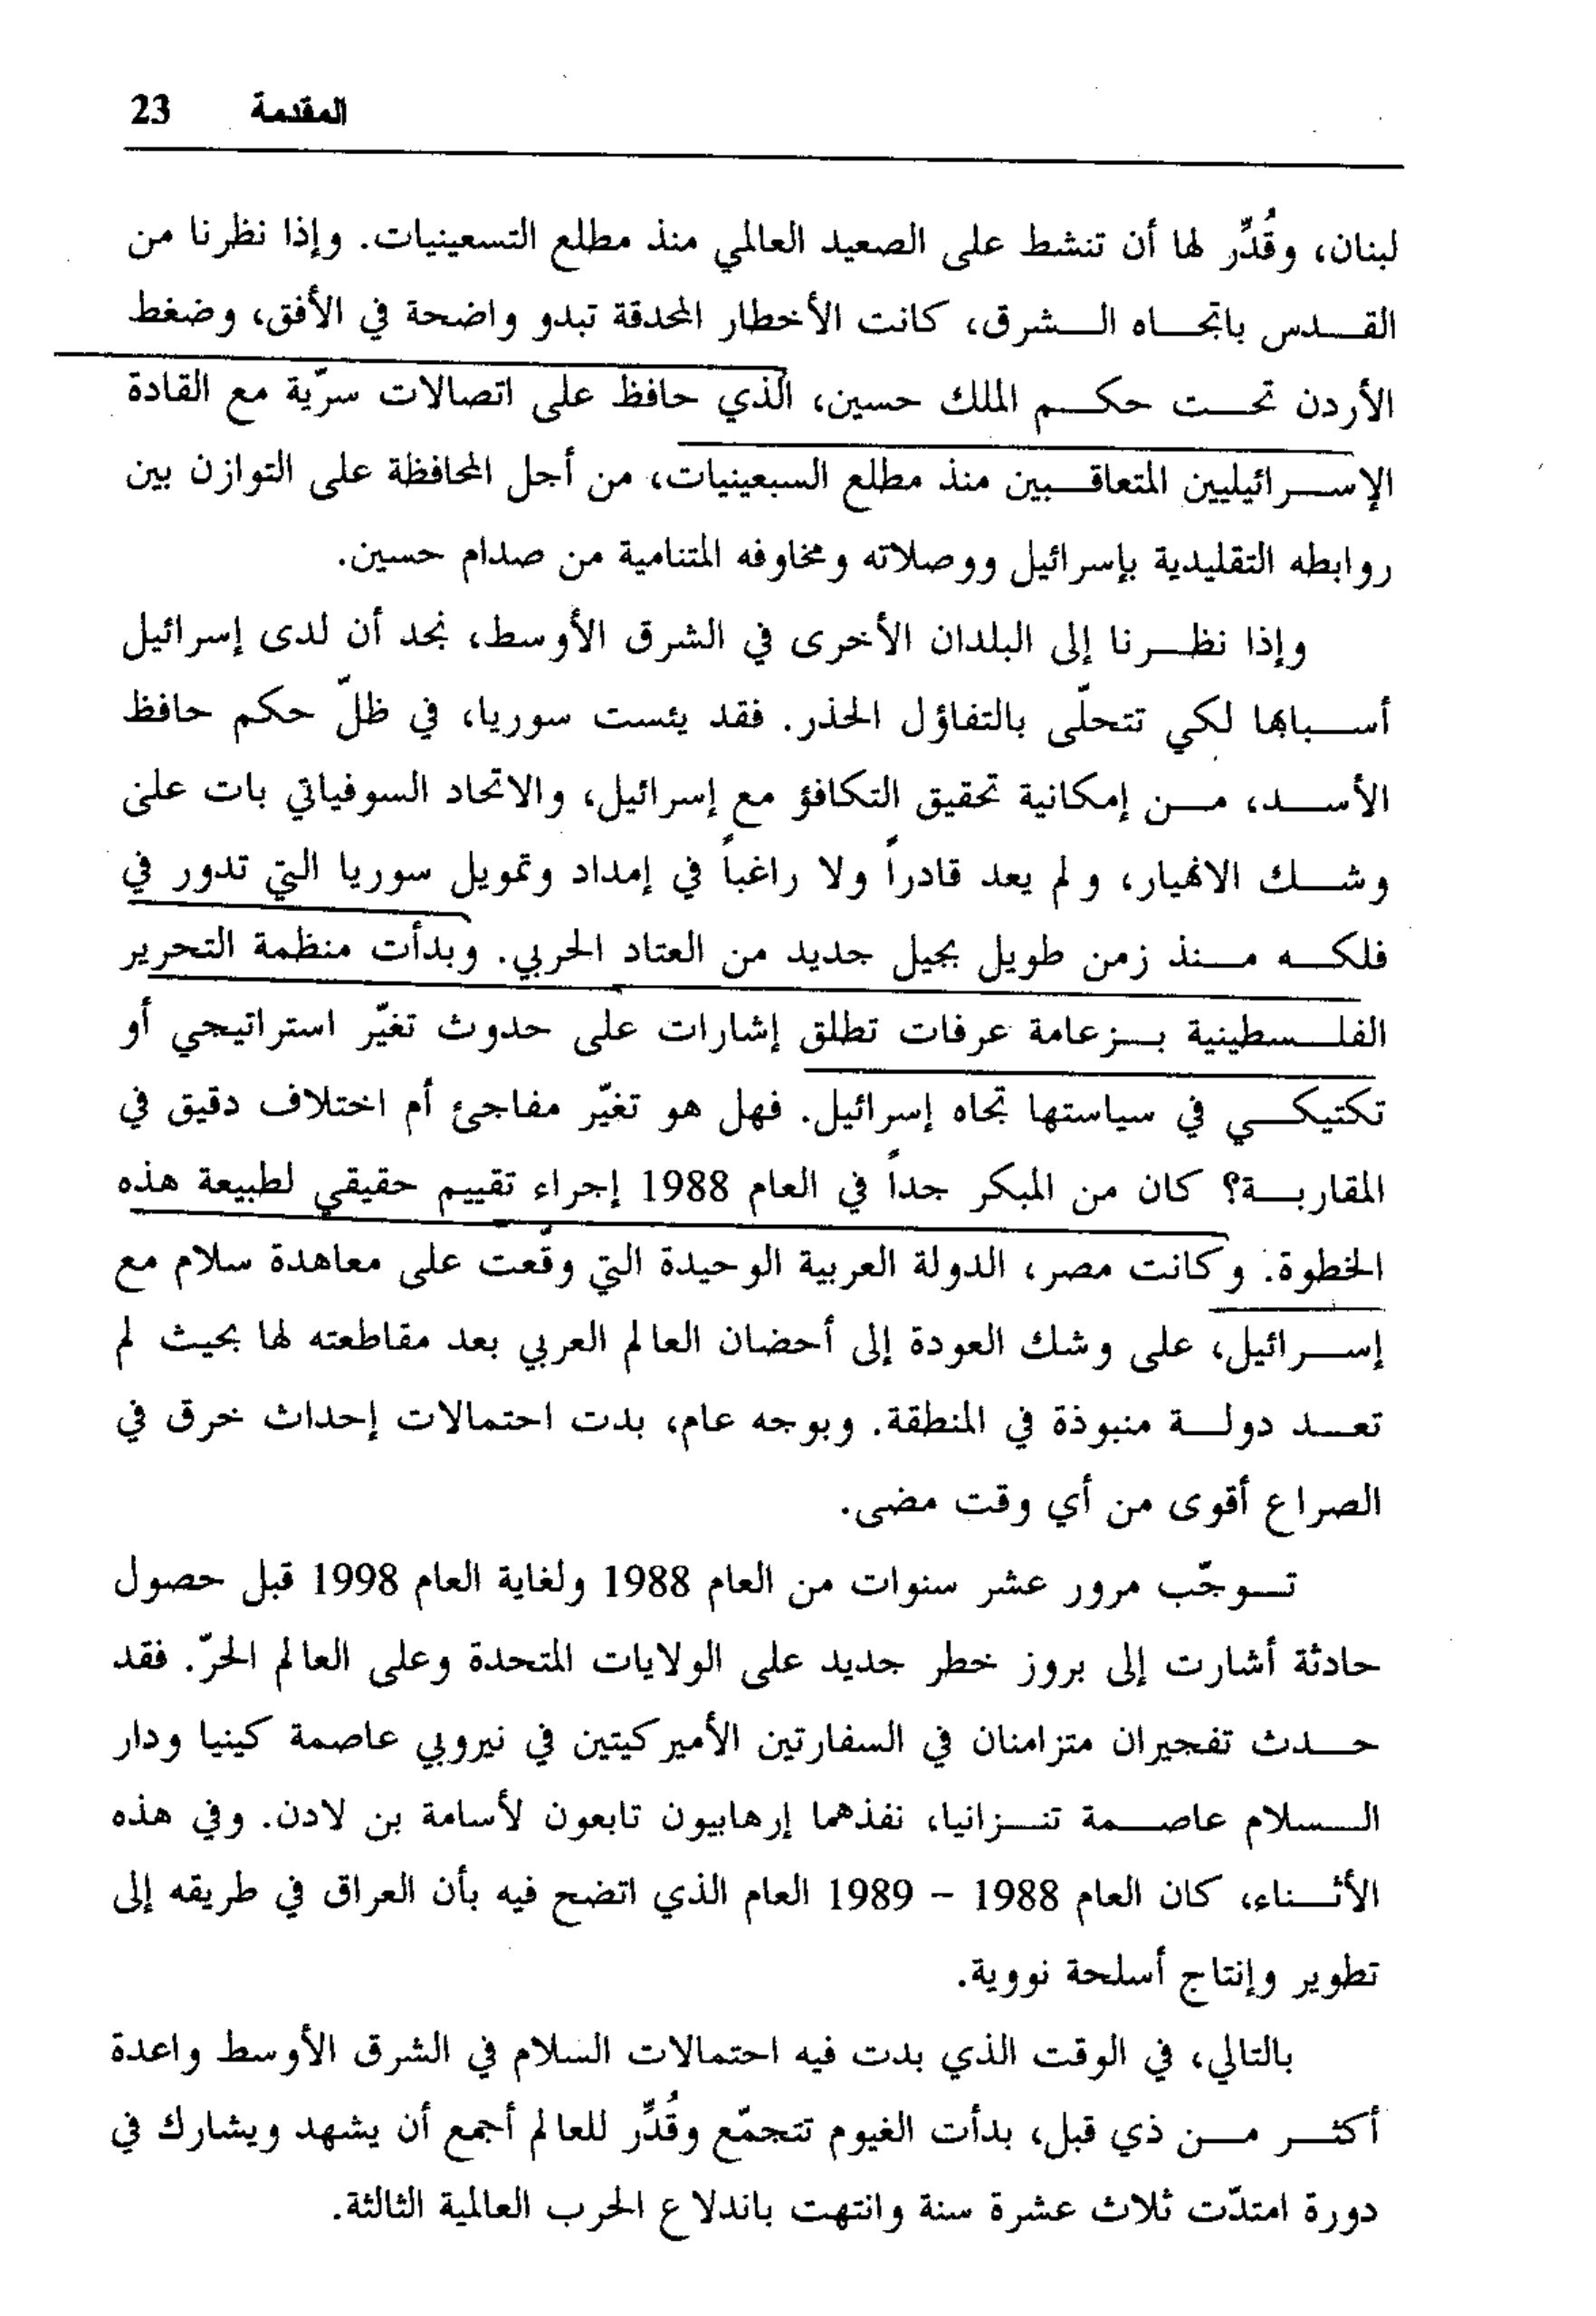 المقدمة 23
لبنان، وقُدِّر لها أن تنشط على الصعيد العالمي منذ مطلع التسعينيات. وإذا نظرنا من
القدس باتجاه الشرق، كانت الأخطار المحدقة تبدو واضحة في الأفق، وضغط
الأردن تحت حكم الملك حسين، الذي حافظ على اتصالات سرّية مع القادة
الإسرائيليين المتعاقبين منذ مطلع السبعينيات، من أجل المحافظة على التوازن بين
روابطه التقليدية بإسرائيل ووصلاته ومخاوفه المتنامية من صدام حسين.
وإذا نظرنا إلى البلدان الأخرى في الشرق الأوسط، نجد أن لدى إسرائيل
أسبابها لكي تتحلّى بالتفاؤل الحذر. فقد يئست سوريا، في ظلّ حكم حافظ
الأسد، من إمكانية تحقيق التكافؤ مع إسرائيل، والاتحاد السوفياتي بات على
وشك الانهيار، ولم يعد قادراً ولا راغباً في إمداد وتمويل سوريا التي تدور في
فلكه منذ زمن طويل بجيل جديد من العتاد الحربي. وبدأت منظمة التحرير
الفلسطينية بزعامة عرفات تطلق إشارات على حدوث تغيّر استراتيجي أو
تكتيكي في سياستها تجاه إسرائيل. فهل هو تغيّر مفاجئ أم اختلاف دقيق في
المقاربة؟ كان من المبكر جداً في العام 1988 إجراء تقييم حقيقي لطبيعة هذه
الخطوة. وكانت مصر، الدولة العربية الوحيدة التي وقّعت على معاهدة سلام مع
إسرائيل، على وشك العودة إلى أحضان العالم العربي بعد مقاطعته لها بحيث لم
تعد دولة منبوذة في المنطقة. وبوجه عام، بدت احتمالات إحداث خرق في
الصراع أقوى من أي وقت مضى.
توجّب مرور عشر سنوات من العام 1988 ولغاية العام 1998 قبل حصول
حادثة أشارت إلى بروز خطر جديد على الولايات المتحدة وعلى العالم الحرّ. فقد
حدث تفجيران متزامنان في السفارتين الأميركيتين في نيروبي عاصمة كينيا ودار
السلام عاصمة تنزانيا، نفذهما إرهابيون تابعون لأسامة بن لادن. وفي هذه
الأثناء، كان العام 1988 – 1989 العام الذي اتضح فيه بأن العراق في طريقه إلى
تطوير وإنتاج أسلحة نووية.
بالتالي، في الوقت الذي بدت فيه احتمالات السلام في الشرق الأوسط واعدة
أكثر من ذي قبل، بدأت الغيوم تتجمّع وقُدِّر للعالم أجمع أن يشهد ويشارك في
دورة امتدّت ثلاث عشرة سنة وانتهت باندلاع الحرب العالمية الثالثة.